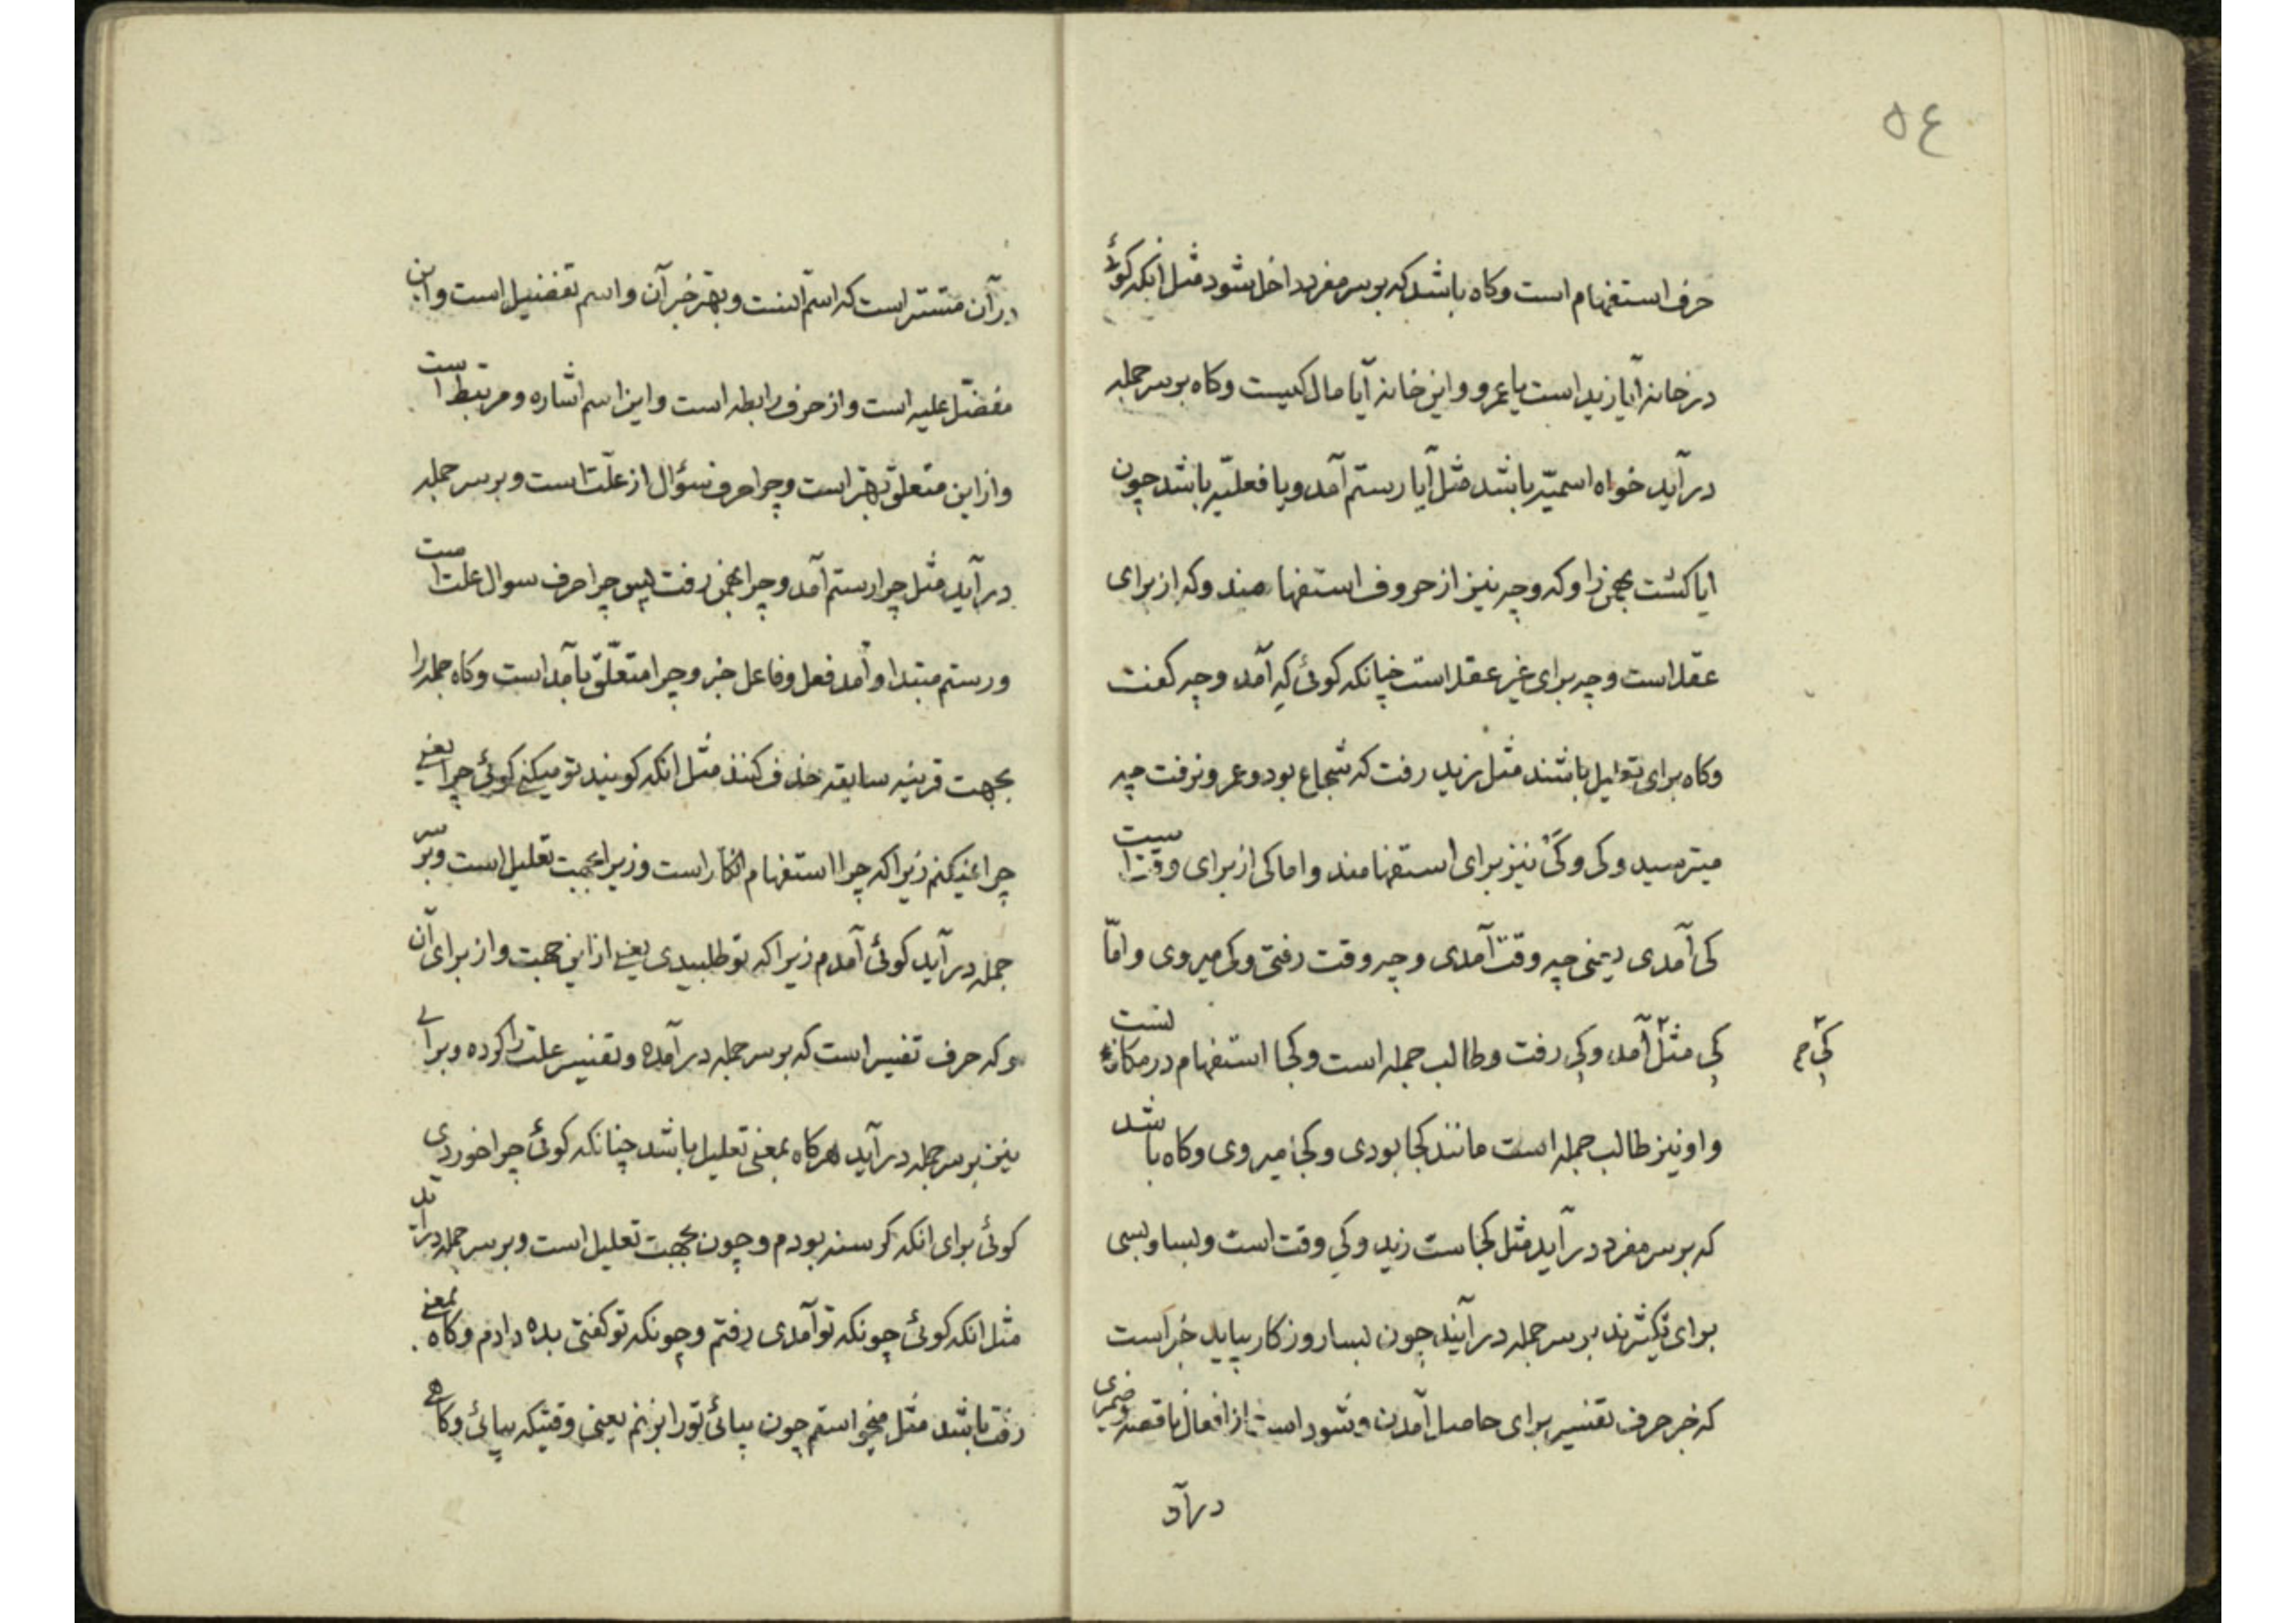 ۵۴
حرف استفهام است وکاه باشد که بوسر مفرد داخل شود مثل انکه کوئی
در خانه آیا زید است یا عمرو و این خانه آیا مال کیست وکاه بوسر جمله
در آید خواه اسمیّه باشد مثل آیا رستم آمد و یا فعلیّه باشد چون
ایا کشت بهمن را و که و چه نیز از حروف استفهامند و که از برای
عقلا است و چه برای غیر عقلا است چنانکه کوئی که آمد و چه کفت
وکاه برای تعلیل باشند مثل زید رفت که شجاع بود و عمرو نرفت چه
میترسید و کی و کَیْ نیز برای استفهامند و اما کی از برای وقت است
کی آمدی یعنی چه وقت آمدی و چه وقت رفتی و کی میروی و امّا
کِی مثل آمد و کِی رفت و طالب جمله است و کجا استفهام در مکان است
کِی م
و او نیز طالب جمله است مانند کجا بودی و کجا میروی وکاه باشد
که بوسر مفرد در آید مثل کجاست زید و کی وقت است و بسا و بسی
برای تکثیرند بر سر جمله در آیند چون بسا روزکار بباید خبر است
که خبر حرف تفسیر برای حاصل آمدن و شود است از افعال ناقصه و ضمیری
در آن
در آن مستتر است که اسم انست و بهتر خبر آن و اسم تفضیل است و این
مفضّل علیه است و از حرف رابطه است و این اسم اشاره و مرتبط است
و از این متعلّق بهتر است و چرا حرف سؤال از علّت است و بر سر جمله
در آید مثل چرا رستم آمد و چرا بهمن رفت پس چرا حرف سوال علت است
و رستم مبتدا و آمد فعل و فاعل خبر و چرا متعلّق بآمد است وکاه جمله را
بجهت قرینه سابقه حذف کنند مثل انکه کویند تو میکنی کوئی چرا یعنی
چرا نمیکنم زیرا که چرا استفهام انکار است و زیرا بجهت تعلیل است و بر سر
جمله در آید کوئی آمدم زیرا که تو طلبیدی یعنی از این جهت و از برای آن
و که حرف تفسیر است که بوسر جمله در آمده و تفسیر علت را کرده و برای
نیز بوسر جمله در آید هرکاه بمعنی تعلیل باشد چنانکه کوئی چرا خوردی
کوئی برای انکه کرسنه بودم و چون بجهت تعلیل است و بر سر جمله در آید
مثل انکه کوئی چونکه تو آمدی رفتم و چونکه تو کفتی بده دادم وکاه بمعنی
وقت باشد مثل میخواستم چون بیائی تو را بزنم یعنی وقتیکه بیائی وکاهی